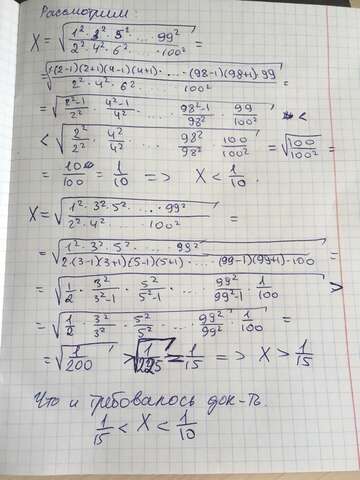 Рассмотрим:
X = √(1²·3²·5²· ... ·99² / 2²·4²·6²· ... ·100²) =
= √(1·(2-1)(2+1)(4-1)(4+1)· ... ·(98-1)(98+1)·99 / 2²·4²·6²· ... ·100²) =
= √((2²-1)/2² · (4²-1)/4² · ... · (98²-1)/98² · 99/100²) <
< √(2²/2² · 4²/4² · ... · 98²/98² · 100/100²) = √(100/100²) =
= 10/100 = 1/10 => X < 1/10.
X = √(1²·3²·5²· ... ·99² / 2²·4²· ... ·100²) =
= √(1²·3²·5²· ... ·99² / 2·(3-1)(3+1)(5-1)(5+1)· ... ·(99-1)(99+1)·100) =
= √(1/2 · 3²/(3²-1) · 5²/(5²-1) · ... · 99²/(99²-1) · 1/100) >
= √(1/2 · 3²/3² · 5²/5² · ... · 99²/99² · 1/100) =
= √(1/200) > √(1/225) = 1/15 => X > 1/15
Что и требовалось док-ть.
1/15 < X < 1/10